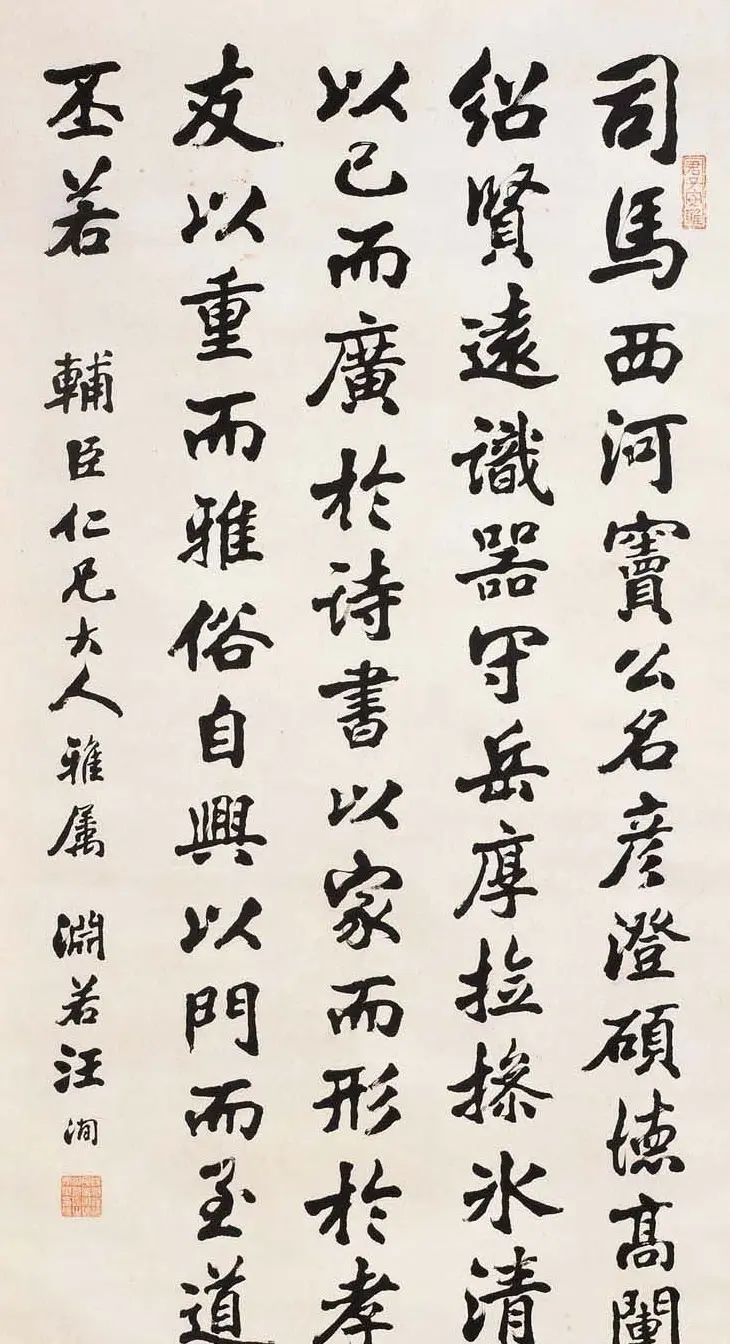 君子安雅
司馬西河竇公名彦澄碩德高闡
紹賢遠識器守岳厚撿操氷清
以己而廣於詩書以家而形於孝
友以重而雅俗自興以門而至道
丕若 輔臣仁兄大人雅属 淵若汪洵